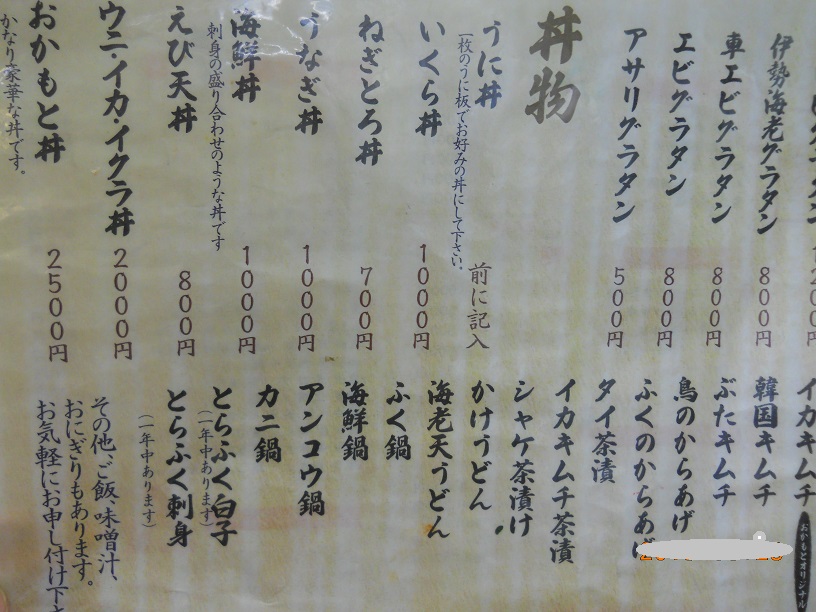 伊勢海老グラタン 800円
車エビグラタン 800円
エビグラタン 800円
アサリグラタン 500円
丼物
うに丼 前に記入
一枚のうに板でお好みの丼にして下さい。
いくら丼 1000円
ねぎとろ丼 700円
うなぎ丼 1000円
海鮮丼 1000円
刺身の盛り合わせのような丼です
えび天丼 800円
ウニ・イカ・イクラ丼 2000円
おかもと丼 2500円
かなり豪華な丼です。
イカキムチ
おかもとオリジナル
韓国キムチ
ぶたキムチ
鳥のからあげ
ふくのからあげ
タイ茶漬
イカキムチ茶漬
シャケ茶漬け
かけうどん
海老天うどん
ふく鍋
海鮮鍋
アンコウ鍋
カニ鍋
とらふく白子
(一年中あります)
とらふく刺身
(一年中あります)
その他、ご飯、味噌汁、
おにぎりもあります。
お気軽にお申し付け下